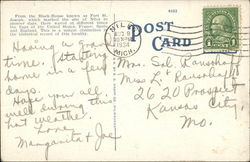 From the Block-House known as Fort St.
Joseph, which marked the site of Niles in
pioneer days, there waved at different times
the flags of the United States, France, Spain
and England. This is a unique distinction in
the historical record of this locality.
NILES
AUG
1938
MICH
POST
CARD
Having a grand
time. Starting
home in a few
days.
Hope you all
well during this
hot weather.
Love,
Margarite & Joe
Mrs. Sal
Miss L.
2620 Prospect
Kansas City
Mo.